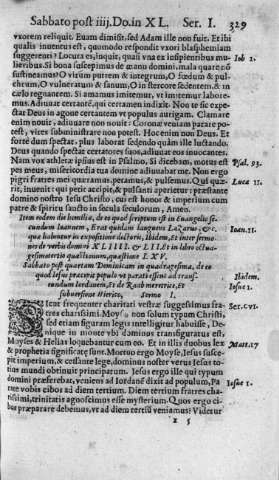 Sabbato post iiij. Do. in XL. Ser. I. 329
vxorem reliquit. Euam dimisit, sed Adam ille non fuit. Et ibi
qualis inuentus est, quomodo respondit vxori blasphemiam
suggerenti? Locuta es, inquit, quasi vna ex insipientibus mu- Iob 2.
lieribus. Si bona suscepimus de manu domini, mala quare non
sustineamus? O virum putrem & integrum, O fœdum & pul-
chrum, O vulneratum & sanum, O in stercore sedentem, & in
cælo regnantem. Si amamus imitemur, vt imitemur labore-
mus. Aduincat certanti, qui certamen indixit. Non te sic expe-
ctat Deus in agone certantem vt populus aurigam. Clamare
enim nouit, adiuuare non nouit. Coronam veniam parare po-
test, vires subministrare non potest. Hoc enim non Deus. Et
forte dum spectat, plus laborat sedendo quàm ille luctando.
Deus quando spectat certatores suos, adiuuat eos inuocantes.
Nam vox athletæ ipsius est in Psalmo, Si dicebam, motus est Psal. 93.
pes meus, misericordia tua domine adiuuabat me. Non ergo
pigri fratres mei quæramus, petamus, & pulsemus. Qui quæ- Lucæ 11.
rit, inuenit: qui petit accipit, & pulsanti aperietur: præstante
domino nostro Iesu Christo, cui est honor & imperium cum
patre & spiritu sancto in sæcula sæculorum, Amen.
Item eodem die homilia, de eo quod scriptum est in Euangelio se-
cundum Ioannem, Erat quidam languens Lazarus, &c. Ioan. 11.
qua habetur in expositione
ner de verbis domini XLIIII. & LII. & in libro octua-
gesimatertia quæstionum, quæstione LXV.
Sabbato post quartam Dominicam in quadragesima, de eo
quod Iesus
cundum Iordanem, & de Raab meretrice, & Iosue 1.
subuersione Hiericho, Sermo I.
Sicut frequenter charitati vestræ suggessimus fra- Ser. CVI.
tres charissimi. Moyses non solum typum Christi,
sed etiam figuram legis intelligitur habuisse, De-
nique in monte vbi dominus transfiguratus est,
Moyses & Helias loquebantur cum eo. Et in illis duobus lex Matt. 17
& prophetia significatæ sunt. Mortuo ergo Moyse, Iesus susce-
pit imperium, & cessante lege, dominus noster verus Iesus to-
tius mundi obtinuit principatum. Iesus ergo ille qui typum
domini præferebat, veniens ad Iordanē dixit ad populum, Pa- Iosue 1.
rate vobis cibos ad diem tertium. Diem tertium fratres cha-
rissimi, trinitatis agnoscimus esse mysterium. Quos ergo ci-
bos præparare debemus, vt ad diem tertiū veniamus? Videtur